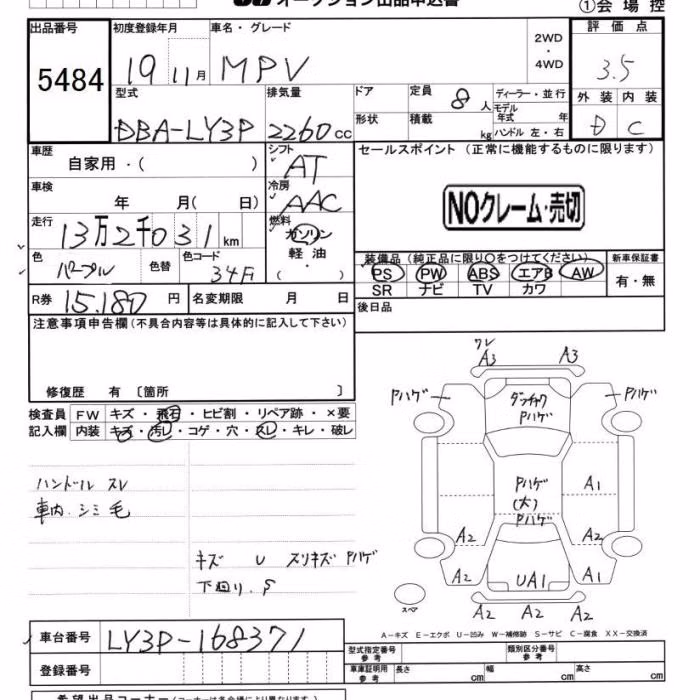 オークション出品申込書
①会場控
出品番号 初度登録年月 車名・グレード 2WD・4WD 評価点
5484 19 11月 MPV 3.5
型式 排気量 ドア 定員 8人 ディーラー・並行 外装 内装
DBA-LY3P 2260cc 形状 積載 kg モデル年式 年 ハンドル 左・右 D C
車歴 シフト セールスポイント (正常に機能するものに限ります)
自家用・( ) AT
車検 冷房 NOクレーム・売切
年 月( 日) AAC
走行 燃料
13万2千031km ガソリン
軽油
・( )
色 色替 色コード 装備品 (純正品に限り○をつけてください) 新車保証書
パープル 34A PS PW ABS エアB AW 有・無
SR ナビ TV カワ
R券 15,180円 名変期限 月 日 後日品
注意事項申告欄(不具合内容等は具体的に記入して下さい)
修復歴 有 〔箇所 〕
検査員 FW キズ・飛石・ヒビ割・リペア跡・×要
記入欄 内装 キズ・汚レ・コゲ・穴・スレ・キレ・破レ
ハンドル スレ
車内 シミ 毛
キズ U スリキズ Pハゲ
下廻り. S
ワレ
A3 A3
Pハゲ Pハゲ
Pハゲ
Pハゲ A1
(大)
Pハゲ
A2 A2
A2 UA1 A1
スペア A2 A2 A2
A−キズ E−エクボ U−凹み W−補修跡 S−サビ C−腐食 XX−交換済
車台番号 LY3P-168371 型式指定番号 参考 類別区分番号 参考
登録番号 車庫証明用 参考 長さ cm 幅 cm 高さ cm
希望出品コーナー